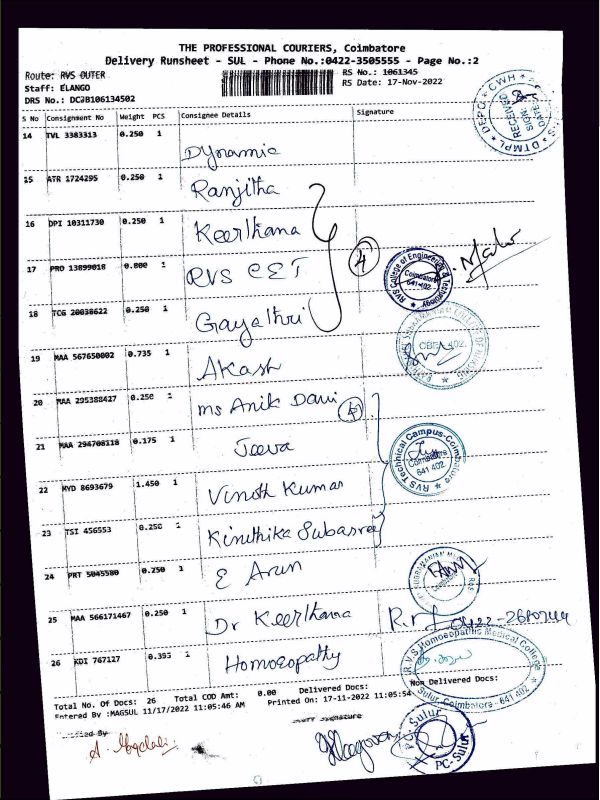 THE PROFESSIONAL COURIERS, Coimbatore
Delivery Runsheet - SUL - Phone No.:0422-3505555 - Page No.:2
Route: RVS OUTER
RS No.: 1061345
Staff: ELANGO
RS Date: 17-Nov-2022
DRS No.: DCJB106134502
S No Consignment No Weight PCS Consignee Details Signature
14 TVL 3383313 0.250 1 Dynamic
15 ATR 1724295 0.250 1 Ranjitha
16 DPI 10311730 0.250 1 Keerthana
17 PRO 13899018 0.800 1 RVS CET
18 TCG 20038622 0.250 1 Gayathri
19 MAA 567650002 0.735 1 Akash
20 MAA 295388427 0.250 1 Ms Anik Davi
21 MAA 294708118 0.175 1 Jeeva
22 HYD 8693679 1.450 1 Vinoth Kumar
23 TSI 456553 0.250 1 Kiruthika Subasree
24 PRT 5045580 0.250 1 E Arun
25 MAA 566171467 0.250 1 Dr Keerthana
26 KDI 767127 0.395 1 Homoeopathy
4
DEPO CWH
DTMPL
RECEIVED
SIGN
DATE
RVS College of Engineering & Technology
Coimbatore
641 402
CBE 402.
RVS Technical Campus-Coimbatore
Coimbatore
641 402
R.V.S. Homoeopathic Medical College
Sulur, Coimbatore - 641 402
Total No. Of Docs: 26 Total COD Amt: 0.00 Delivered Docs: Non Delivered Docs:
Entered By :MAGSUL 11/17/2022 11:05:46 AM Printed On: 17-11-2022 11:05:54
Signature
PC-Sulur